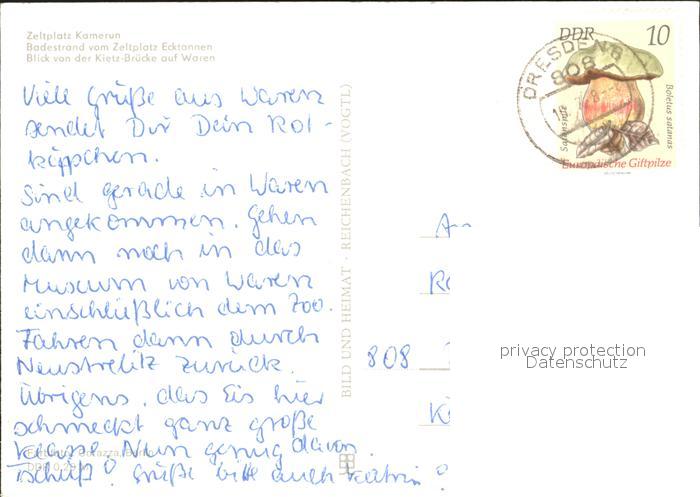 Zeltplatz Kamerun
Badestrand vom Zeltplatz Ecktannen
Blick von der Kietz-Brücke auf Waren
Viele Grüße aus Waren
sendet Dir Dein Rot-
käppchen.
Sind gerade in Waren
angekommen. Gehen
dann noch in das
Museum von Waren
einschließlich dem Zoo.
Fahren dann durch
Neustrelitz zurück.
Übrigens, das Eis hier
schmeckt ganz große
Klasse. Nun genug davon.
Tschüß! Grüße bitte auch Katrin!
BILD UND HEIMAT · REICHENBACH (VOGTL)
DDR 10
DRESDEN
808
Satanspilz
Boletus satanas
Europäische Giftpilze
An
808
privacy protection
Datenschutz